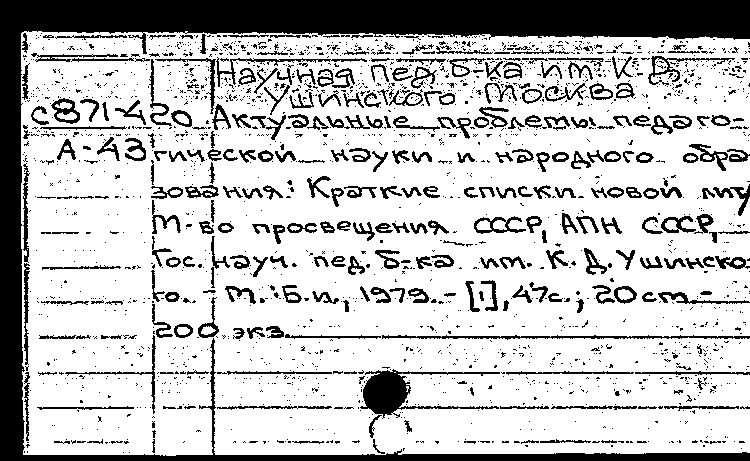 Научная пед. б-ка им. К. Д.
Ушинского. Москва
с871-420 Актуальные проблемы педаго-
А-43 гической науки и народного обра
зования: Краткие списки новой лит/
М-во просвещения СССР, АПН СССР,
Гос. науч. пед. б-ка им. К. Д. Ушинско-
го. - М.: Б.и., 1979. - [1], 47с.; 20 см. -
200 экз.